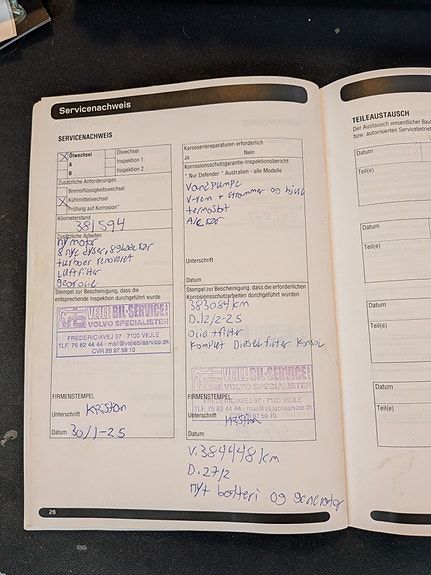 Servicenachweis
SERVICENACHWEIS
Ölwechsel
A
B
Ölwechsel
Inspektion 1
Inspektion 2
Zusätzliche Anforderungen
Bremsflüssigkeitswechsel
Kühlmittelwechsel
Prüfung auf Korrosion*
Kilometerstand
381594
Zusätzliche Arbeiten
ny motor
8 nye dyser, 8 gløderør
turboer renoveret
Luftfilter
gearolie
Stempel zur Bescheinigung, dass die
entsprechende Inspektion durchgeführt wurde
VEJLE BIL-SERVICE
VOLVO SPECIALISTER
FREDERICIAVEJ 97 - 7100 VEJLE
TLF. 75 82 44 44 - mail@vejlebilservice.dk
CVR 28 97 59 10
FIRMENSTEMPEL
Unterschrift
Datum 30/1-25
Karosseriereparaturen erforderlich
Ja Nein
Korrosionsschutzgarantie-Inspektionsbericht:
* Nur Defender * Australien - alle Modelle
Vandpumpe
V-rem + strammer og hjul
termostat
Unterschrift
Datum
Stempel zur Bescheinigung, dass die erforderlichen
Korrosionsschutzarbeiten durchgeführt wurden
383084 km
D. 12/2-25
olie + filter
komplet Dieselfilter konsol
VEJLE BIL-SERVICE
VOLVO SPECIALISTER
FREDERICIAVEJ 97 - 7100 VEJLE
FIRMENSTEMPEL
TLF. 75 82 44 44 - mail@vejlebilservice.dk
Unterschrift
CVR 28 97 59 10
Datum
V. 384448 km
D. 27/2
nyt batteri og generator
26
TEILEAUSTAUSCH
Der Austausch wesentlicher
bzw. autorisierten
Datum
Teil(e)
Datum
Teil(e)
Datum
Teil(e)
Datum
Teil(e)